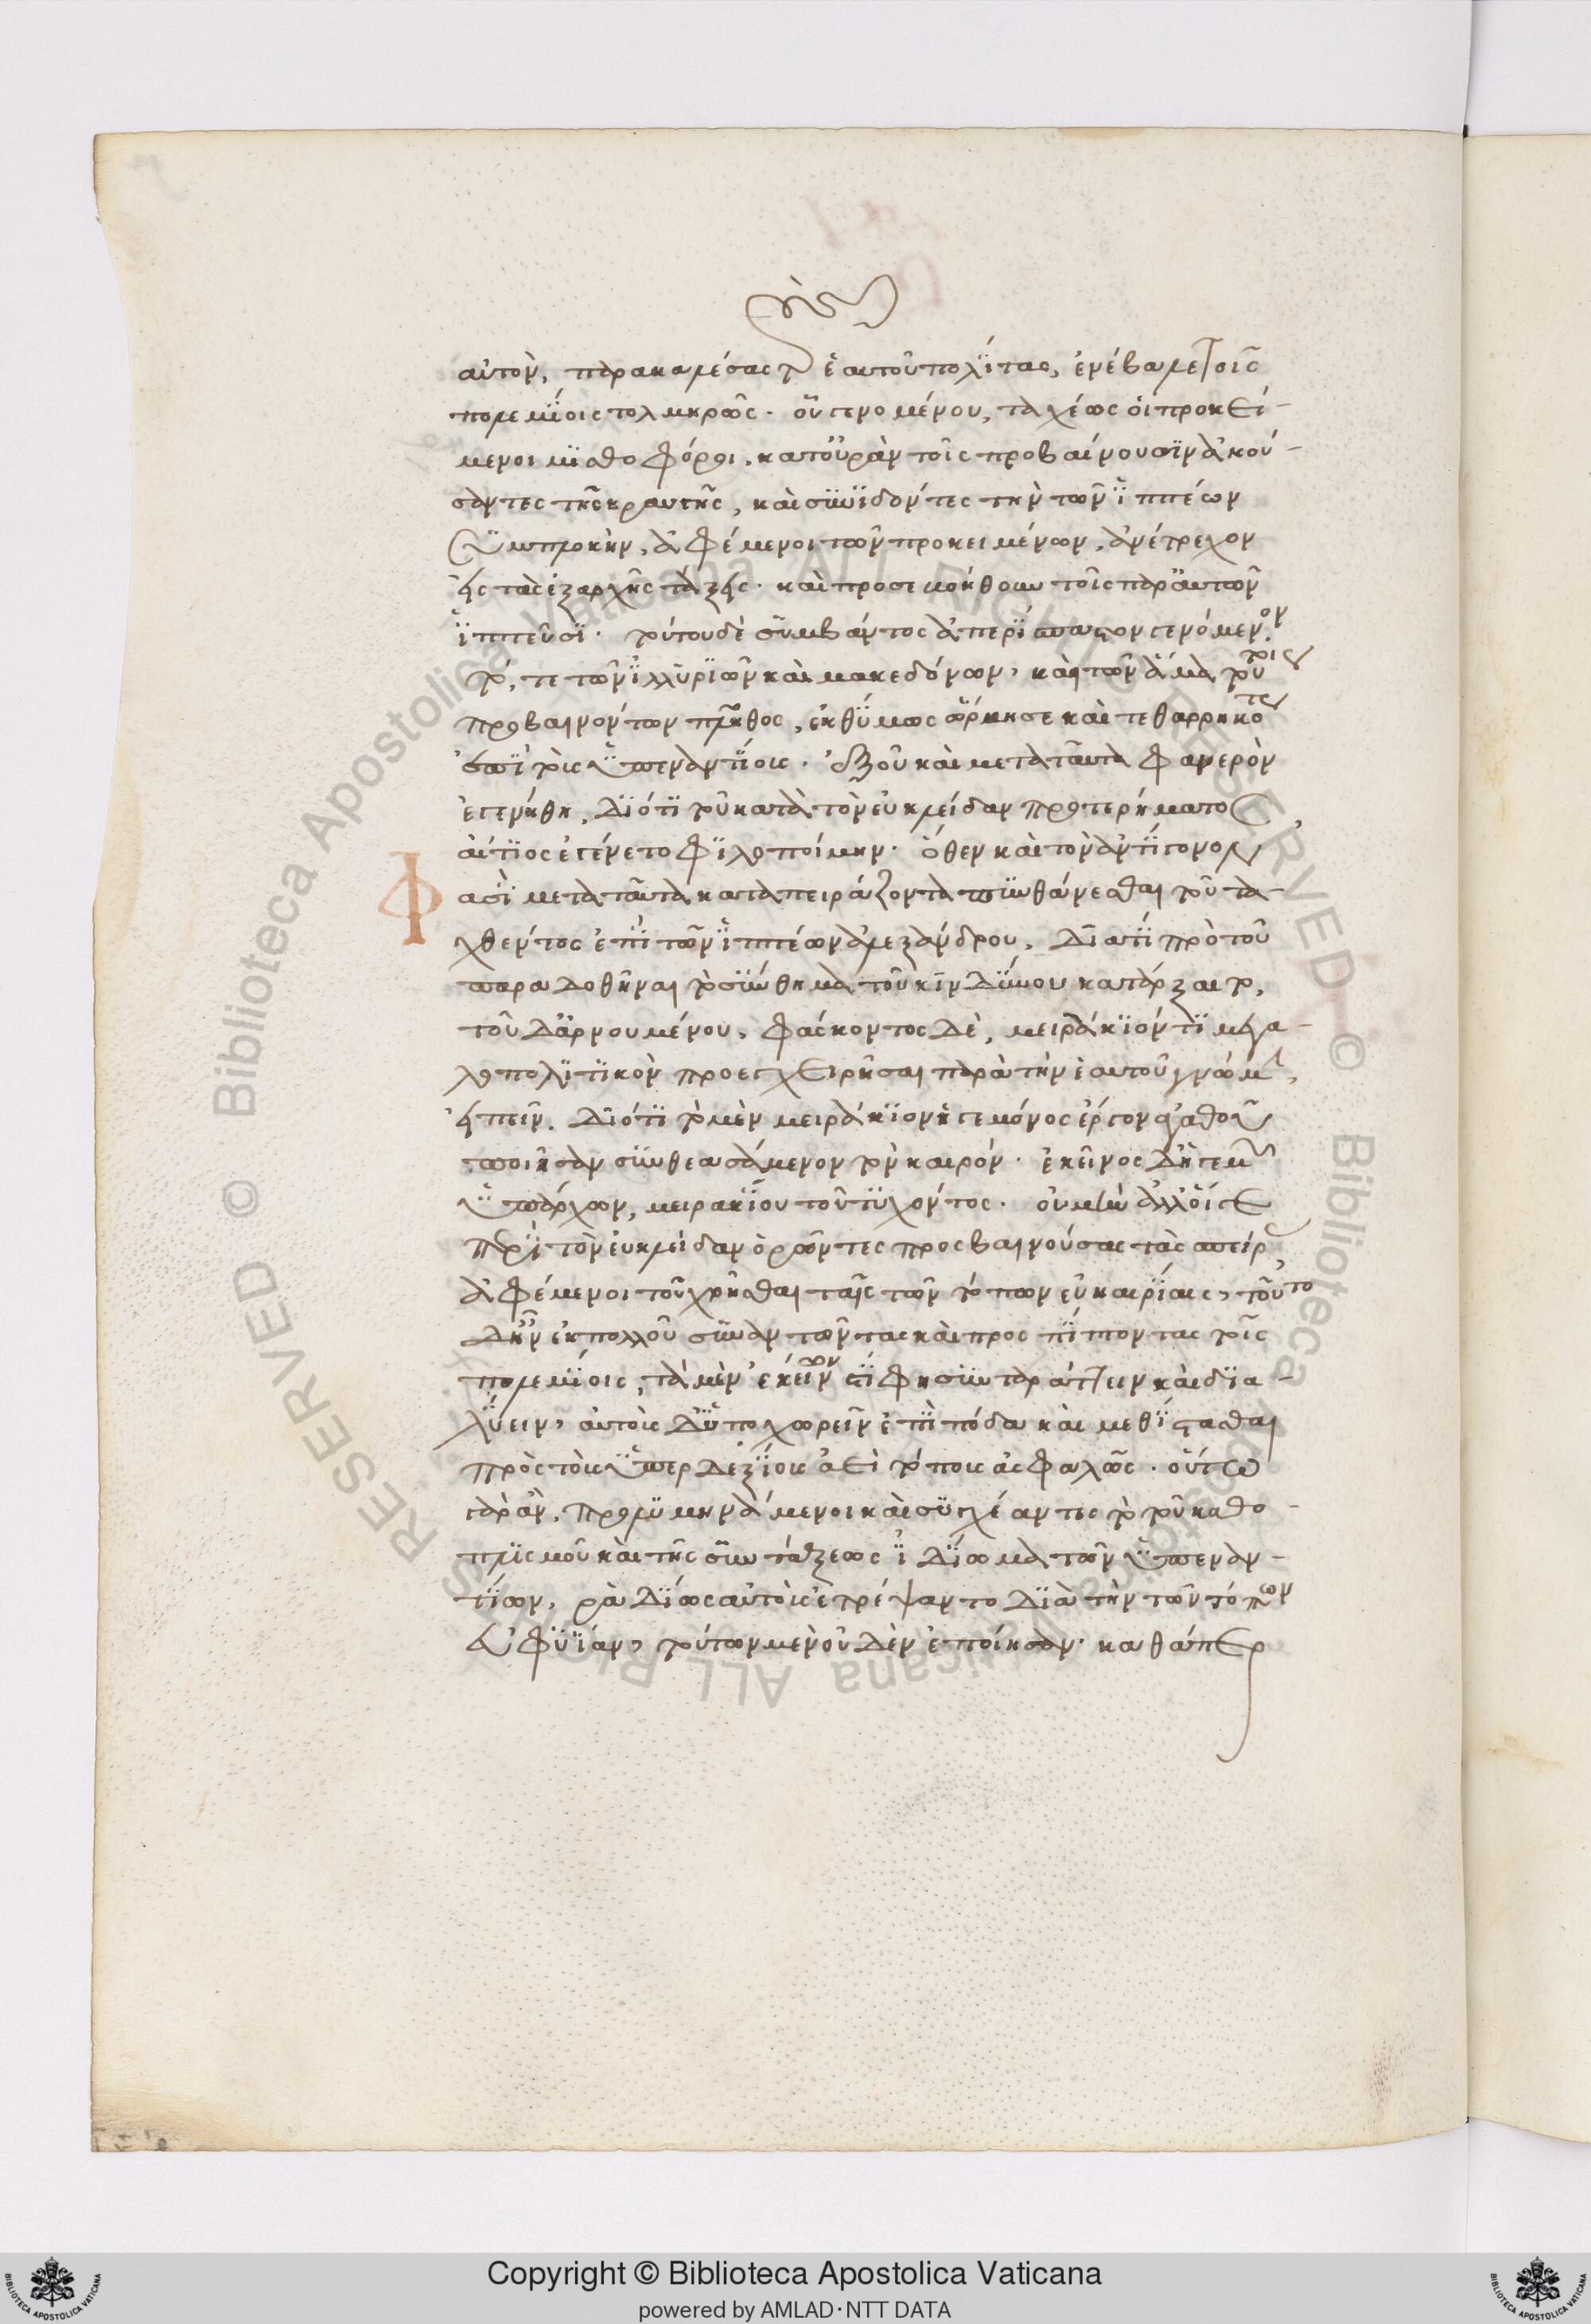 αὐτὸν, παρακαλέσας τοὺς ἑαυτοῦ πολίτας, ἐνέβαλε τοῖς
πολεμίοις τολμηρῶς· οὗ γενομένου, ταχέως οἱ προκεί-
μενοι μισθοφόροι, κατοὐρὰν τοῖς προβαίνουσιν ἀκού-
σαντες τῆς κραυγῆς, καὶ συνιδόντες τὴν τῶν ἱππέων
συμπλοκὴν, ἀφέμενοι τῶν προκειμένων, ἀνέτρεχον
εἰς τὰς ἐξαρχῆς τάξεις· καὶ προσεβοήθουν τοῖς παραὐτῶν
ἱππεῦσι· τούτου δὲ συμβάντος ἀπερίσπαστον γενόμενον·
τό, τε τῶν ἰλλυριῶν καὶ μακεδόνων, καὶ τῶν ἅμα τούτοις
προβαινόντων πλῆθος, ἐκθύμως ὥρμησε καὶ τεθαρρηκότως
ἐπὶ τοὺς ὑπεναντίους· ἐξοὗ καὶ μετὰ ταῦτα φανερὸν
ἐγενήθη, διότι τοῦ κατὰ τὸν εὐκλείδαν προτερήματος,
αἴτιος ἐγένετο φιλοποίμην· ὅθεν καὶ τὸν ἀντίγονον
Φασὶ μετὰ ταῦτα καταπειράζοντα πυνθάνεσθαι τοῦ τα-
χθέντος ἐπὶ τῶν ἱππέων ἀλεξάνδρου, διατί πρὸ τοῦ
παραδοθῆναι τὸ σύνθημα τοῦ κινδύνου κατάρξαιτο,
τοῦ δἀρνουμένου, φάσκοντος δὲ, μειράκιόν τι μεγα-
λοπολιτικὸν προεγχειρῆσαι παρὰ τὴν ἑαυτοῦ γνώμην,
εἰπεῖν. διότι τὸ μὲν μειράκιον ἡγεμόνος ἔργον ἀγαθοῦ
ποιῆσαν συνθεασάμενον τὸν καιρόν· ἐκεῖνος δἡγεμὼν
ὑπάρχων, μειρακίου τοῦ τυχόντος· οὐ μὴν ἀλλοἵγε
περὶ τὸν εὐκλείδαν ὁρῶντες προσβαινούσας τὰς σπείρας,
ἀφέμενοι τοῦ χρῆσθαι ταῖς τῶν τόπων εὐκαιρίαις, τοῦτο
δἦν ἐκπολλοῦ συναντῶντας καὶ προσπίπτοντας τοῖς
πολεμίοις, τὰ μὲν ἐκείνων στίφη συνταράττειν καὶ δια-
λύειν, αὐτοὺς δὑποχωρεῖν ἐπὶ πόδα καὶ μεθίστασθαι
πρὸς τοὺς ὑπερδεξίους ἀεὶ τόπους ἀσφαλῶς· οὕτω
γὰρ ἂν, προλυμηνάμενοι καὶ συγχέαντες τὸ τοῦ καθο-
πλισμοῦ καὶ τῆς συντάξεως ἰδίωμα τῶν ὑπεναν-
τίων, ῥαδίως αὐτοὺς ἐτρέψαντο διὰ τὴν τῶν τόπων
εὐφυΐαν, τούτων μὲν οὐδὲν ἐποίησαν· καθάπερ
Copyright © Biblioteca Apostolica Vaticana
powered by AMLAD·NTT DATA